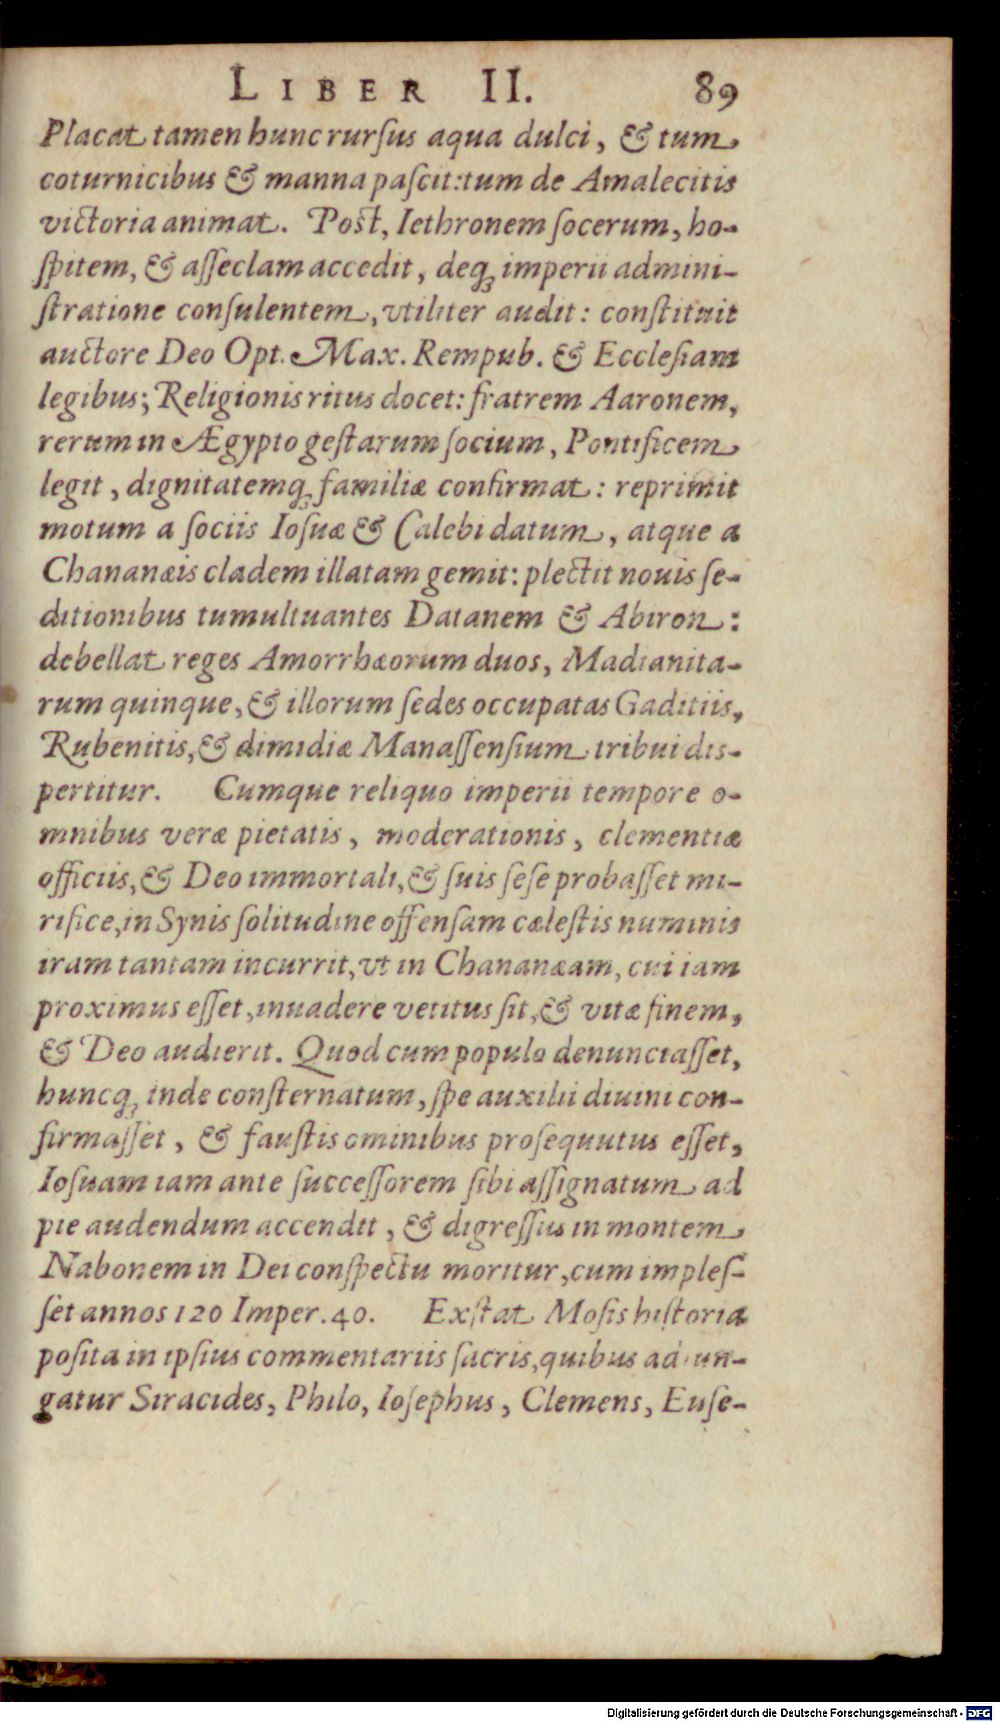 LIBER II. 89
Placat tamen hunc rursus aqua dulci, & tum
coturnicibus & manna pascit: tum de Amalecitis
victoria animat. Post, Iethronem socerum, ho-
spitem, & asseclam accedit, deq́; imperii admini-
stratione consulentem, vtiliter audit: constituit
auctore Deo Opt. Max. Rempub. & Ecclesiam
legibus; Religionis ritus docet: fratrem Aaronem,
rerum in Ægypto gestarum socium, Pontificem
legit, dignitatemq́; familiæ confirmat: reprimit
motum a sociis Iosuæ & Calebi datum, atque a
Chananæis cladem illatam gemit: plectit nouis se-
ditionibus tumultuantes Datanem & Abiron:
debellat reges Amorrhæorum duos, Madianita-
rum quinque, & illorum sedes occupatas Gaditiis,
Rubenitis, & dimidiæ Manassensium tribui dis-
pertitur. Cumque reliquo imperii tempore o-
mnibus veræ pietatis, moderationis, clementiæ
officiis, & Deo immortali, & suis sese probasset mi-
rifice, in Synis solitudine offensam cælestis numinis
iram tantam incurrit, vt in Chananæam, cui iam
proximus esset, inuadere vetitus sit, & vitæ finem,
& Deo audierit. Quod cum populo denunciasset,
huncq́; inde consternatum, spe auxilii diuini con-
firmasset, & faustis ominibus prosequutus esset,
Iosuam iam ante successorem sibi assignatum ad
pie audendum accendit, & digressus in montem
Nabonem in Dei conspectu moritur, cum imples-
set annos 120 Imper. 40. Exstat Mosis historia
posita in ipsius commentariis sacris, quibus adiun-
gatur Siracides, Philo, Iosephus, Clemens, Euse-
Digitalisierung gefördert durch die Deutsche Forschungsgemeinschaft - DFG